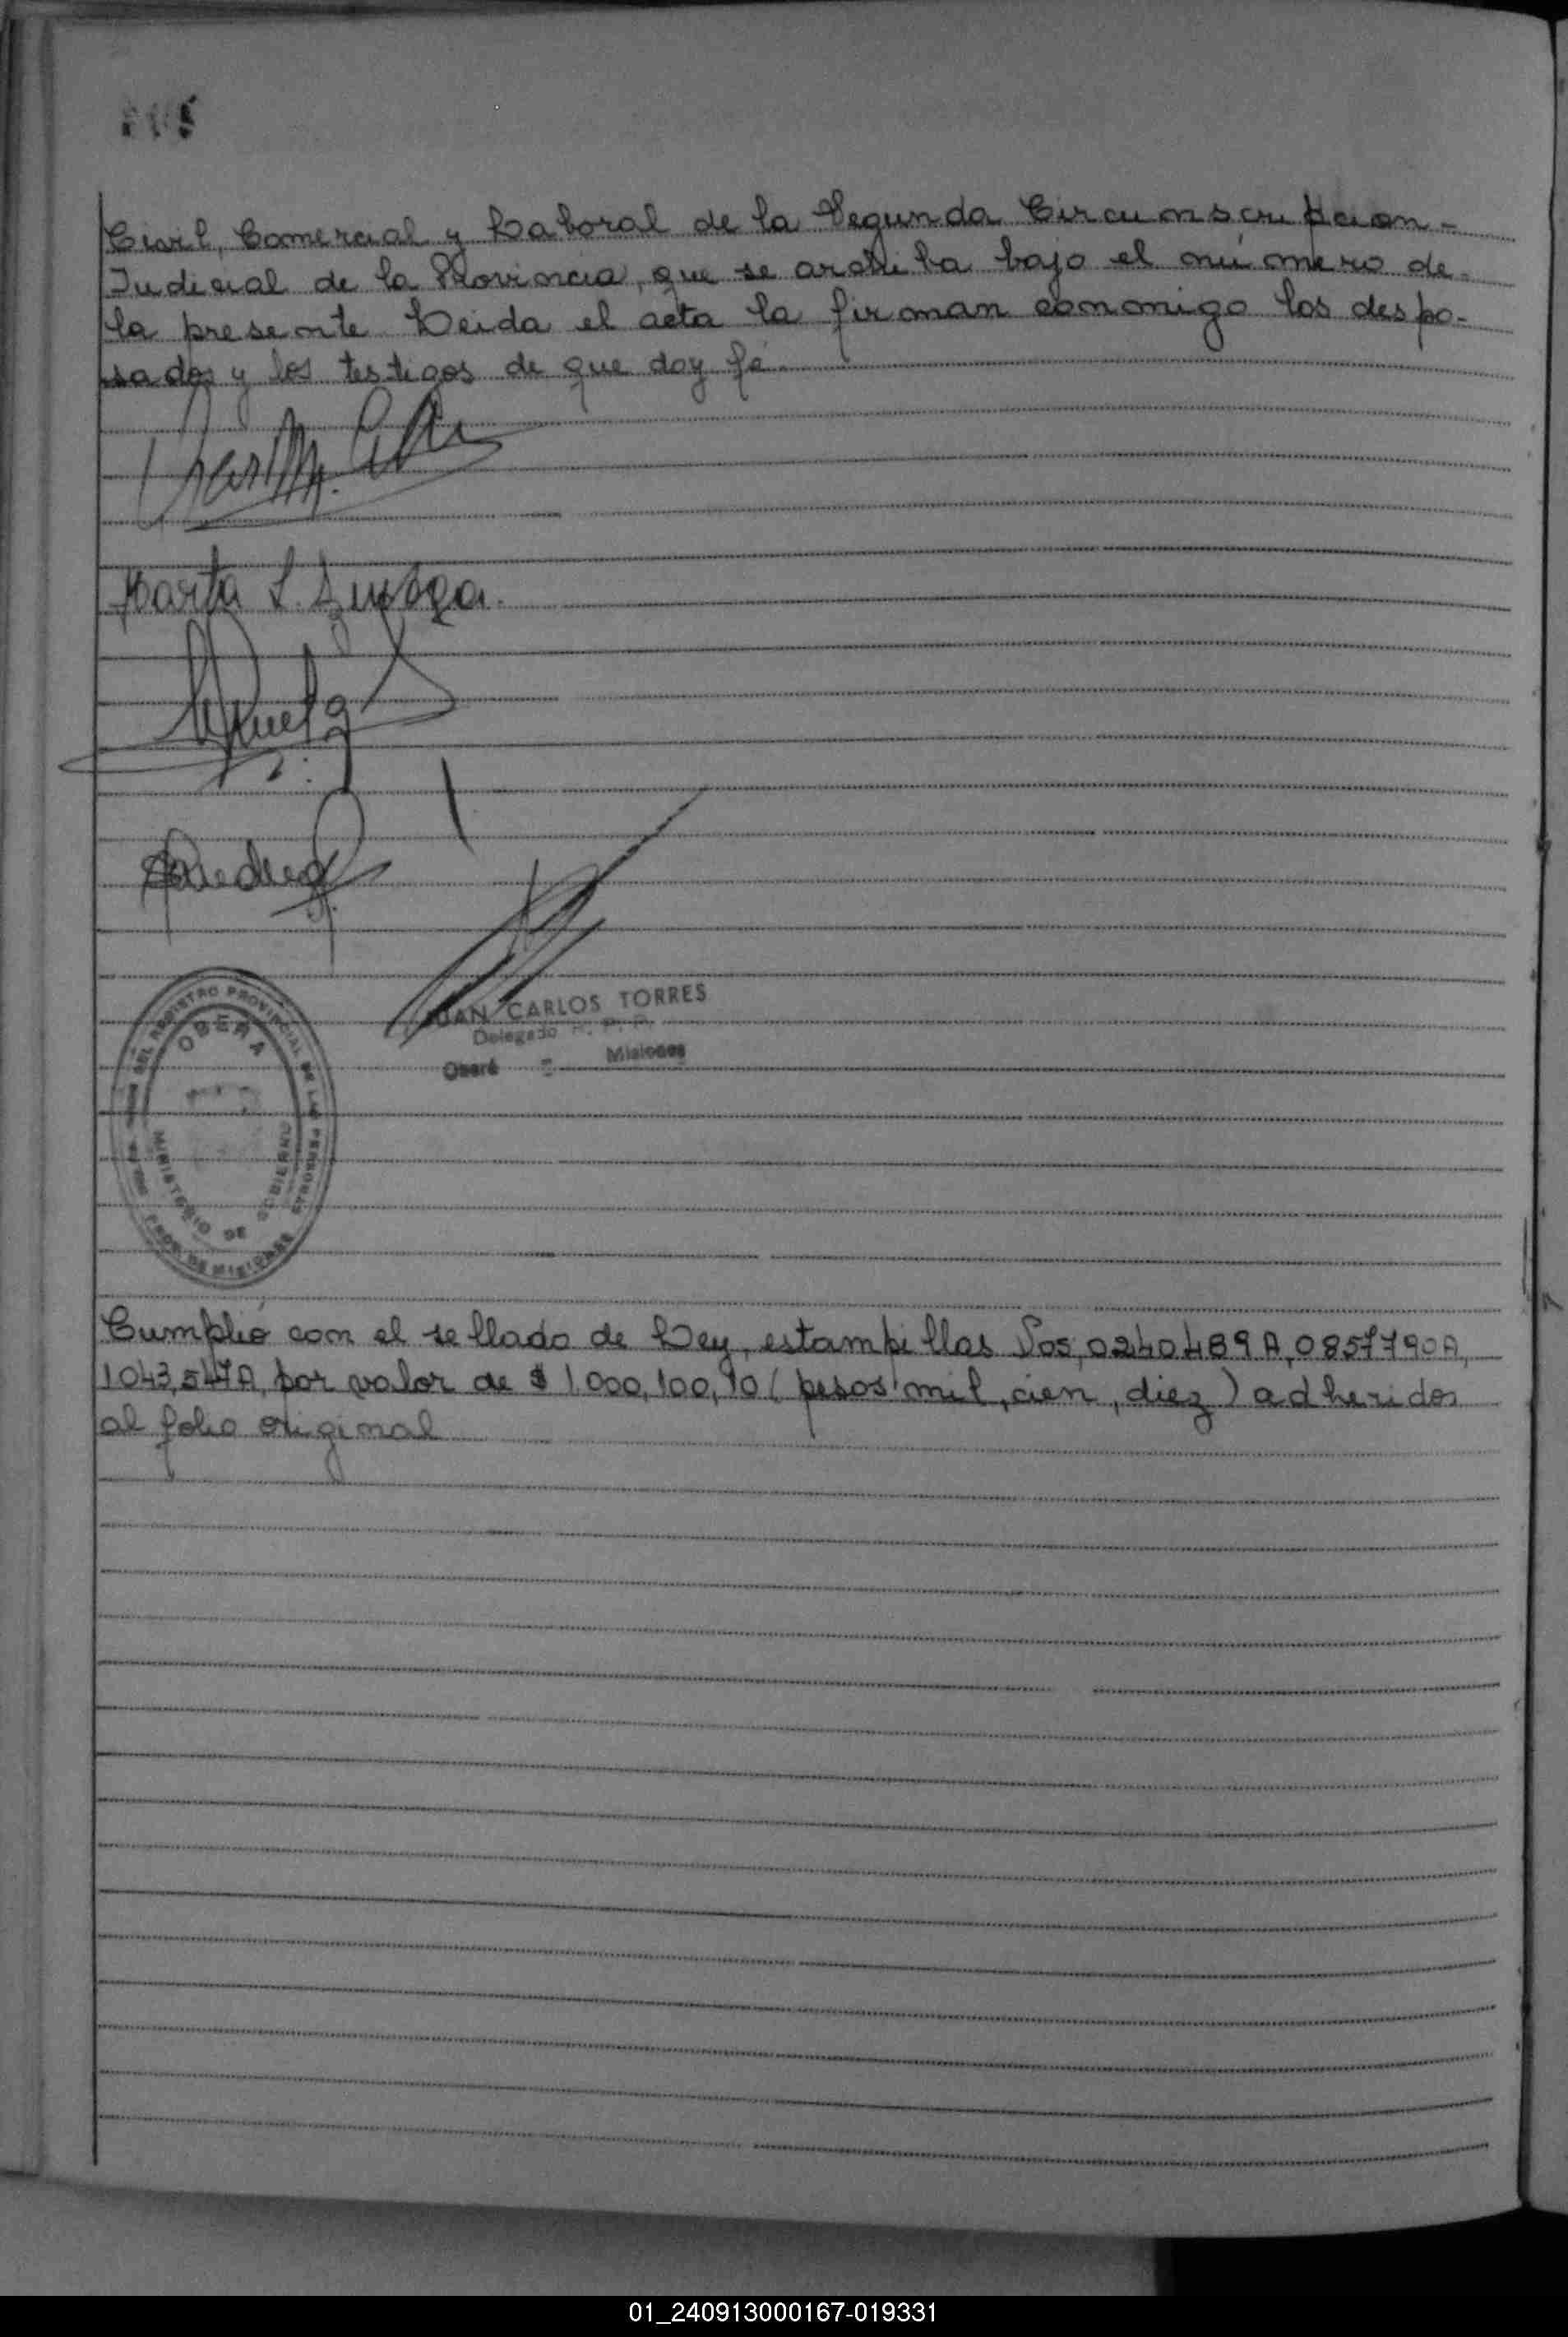 Civil, Comercial y Laboral de la Segunda Circunscripcion-
Judicial de la Provincia, que se archi ba bajo el número de-
la presente Leida el acta la firman conmigo los despo-
sados y los testigos de que doy fé.
Marta L.
JUAN CARLOS TORRES
Delegado
Oberá - Misiones
DEL REGISTRO PROVINCIAL DE LAS PERSONAS
OBERA
MINISTERIO DE GOBIERNO
PROV. DE MISIONES
Cumplió con el sellado de Ley, estampillas Nos, 0240489A, 0857790A,
1043,547A, por valor de $ 1.000,100,10 (pesos mil, cien, diez) adheridos
al folio original
01_240913000167-019331